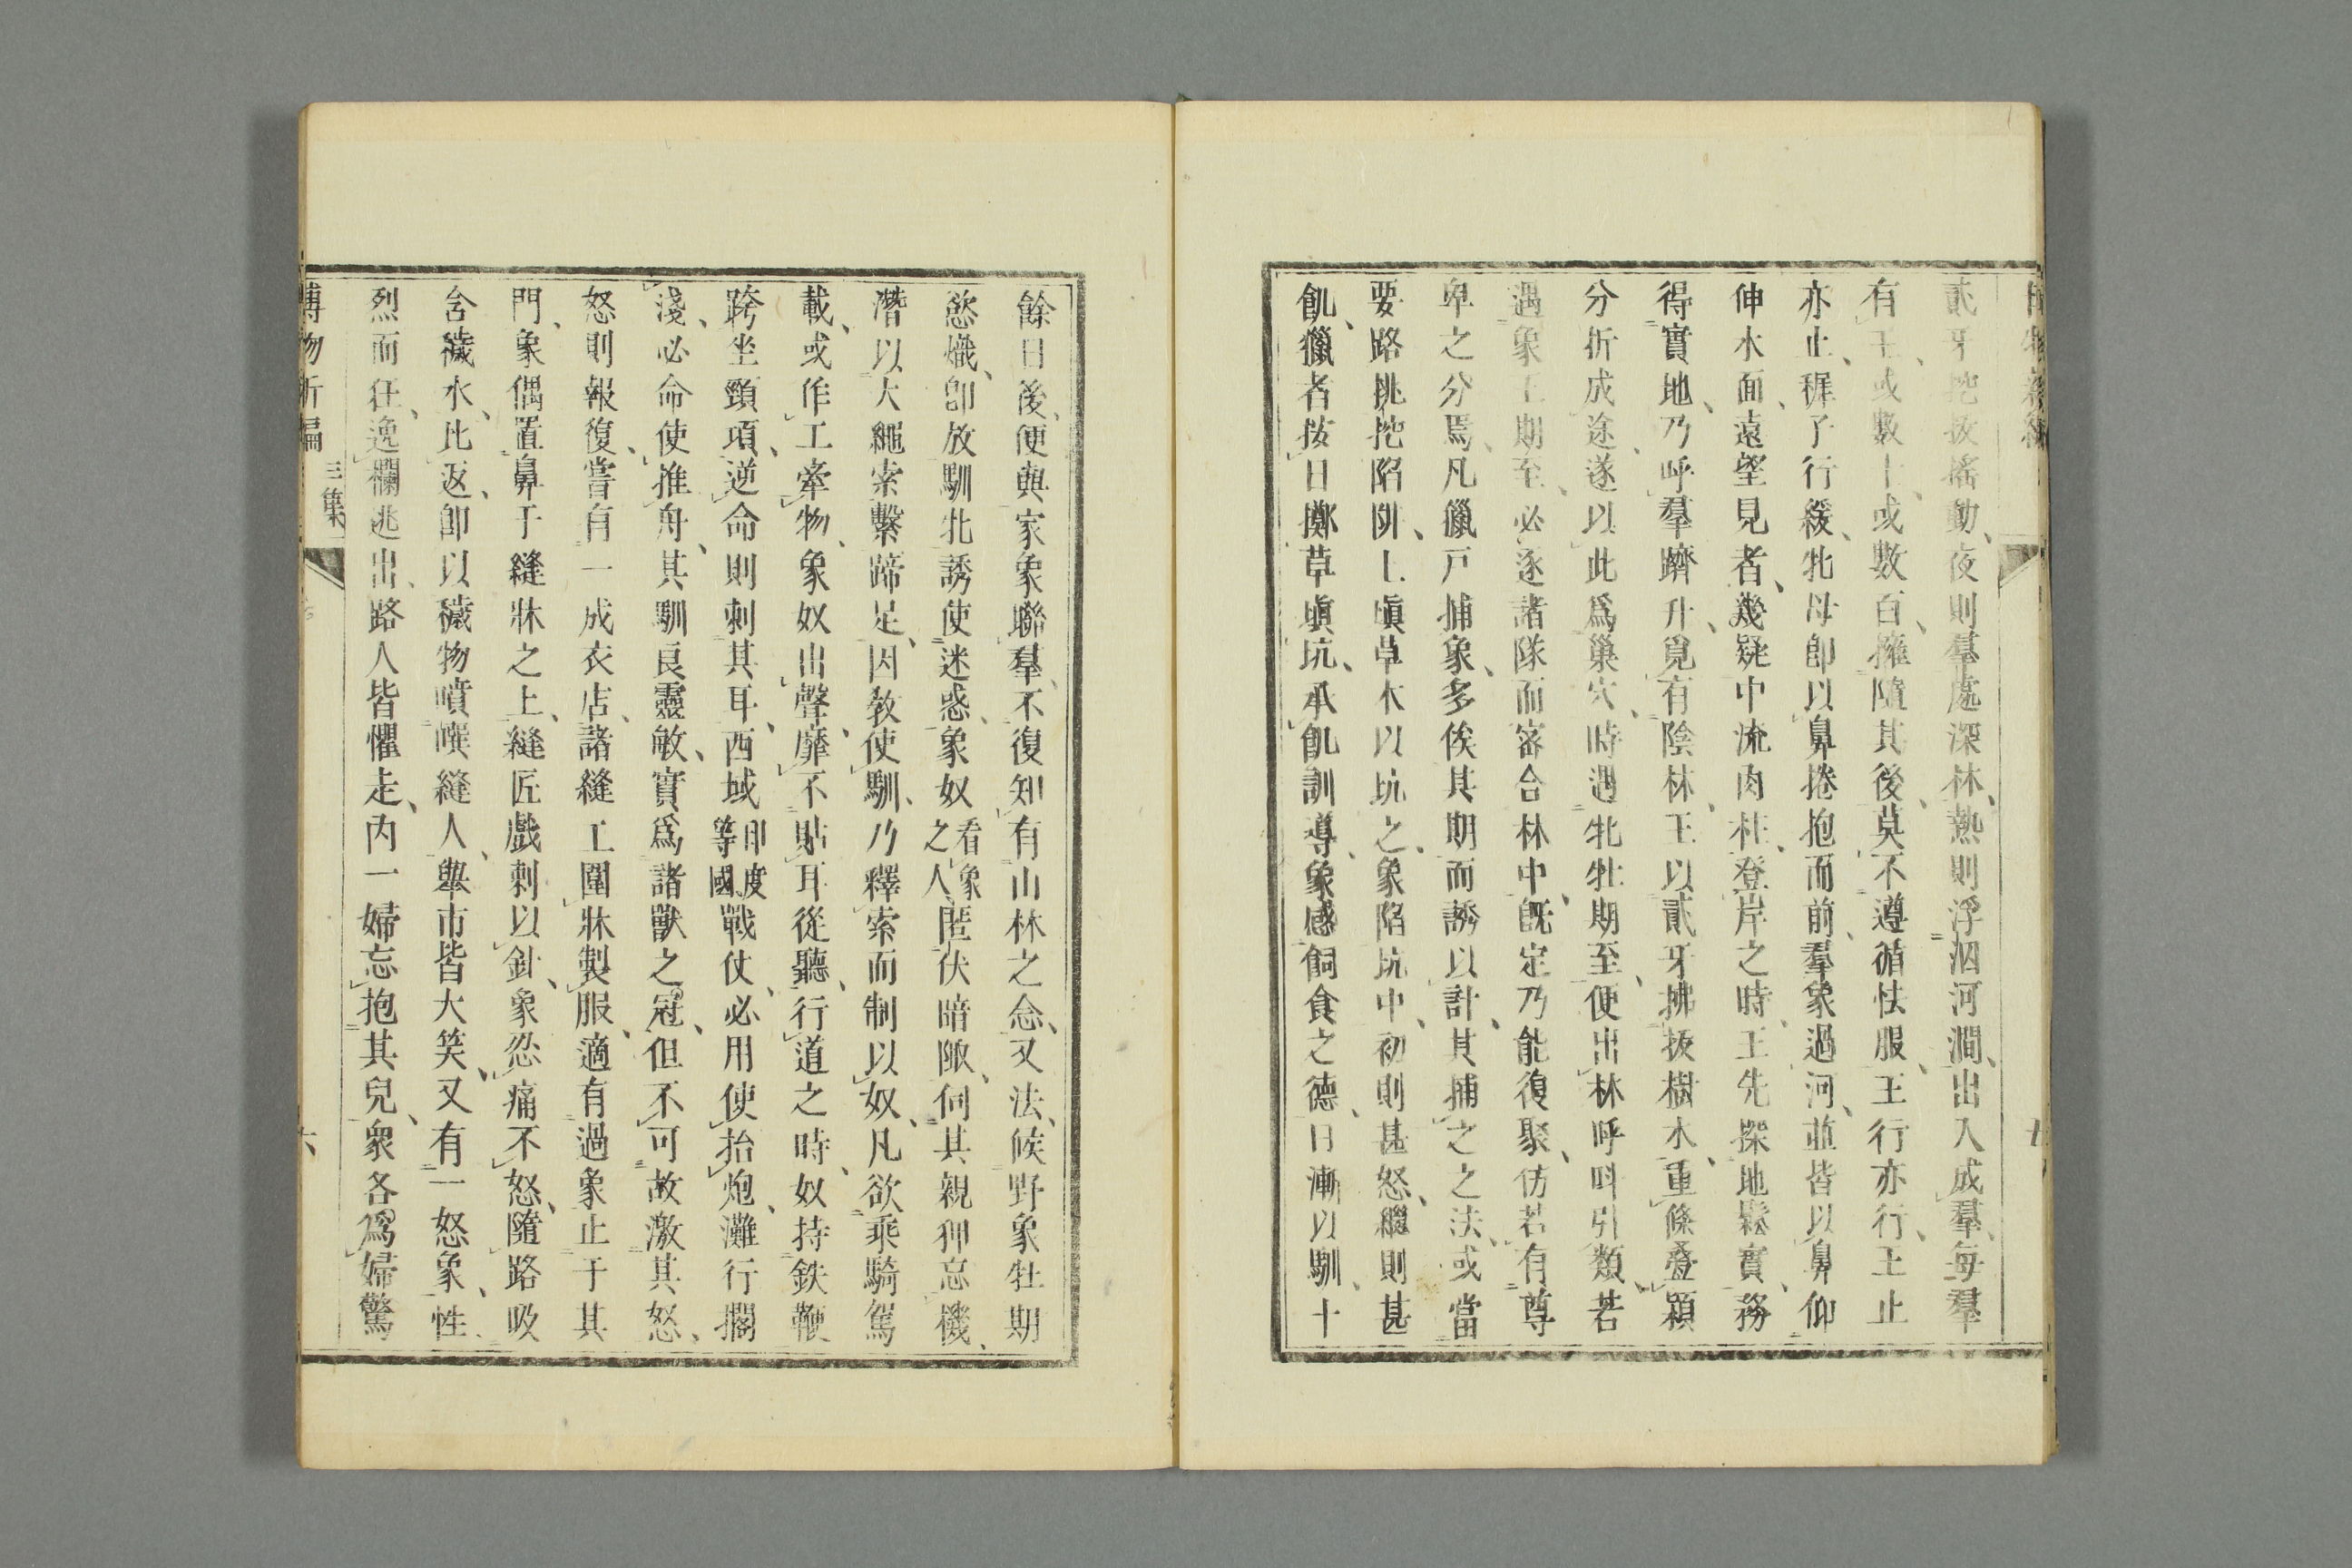 貳牙挖拔搖動、夜則羣處深林、熱則浮泅河澗、出入成羣、每羣
有王、或數十、或數百、擁隨其後、莫不遵循怯服、王行亦行、王止
亦止、穉子行緩、牝母卽以鼻捲抱而前、羣象過河、並皆以鼻仰
伸水面、遠望見者、幾疑中流肉柱、登岸之時、王先探地鬆實、務
得實地、乃呼羣躋升、覓有陰林、王以貳牙拂拔樹木、重條叠穎
分折成途、遂以此爲巢穴、時遇牝牡期至、便出林呼呌引類、若
遇象王期至、必逐諸隊而寡合林中、旣定乃能復聚、仿若有尊
卑之分焉、凡獵戸捕象、多俟其期而誘以計、其捕之之法、或當
要路挑挖陷阱、上塡草木以坑之、象陷坑中、初則甚怒、繼則甚
飢、獵者按日擲草塡坑、承飢訓導、象感飼食之德、日漸以馴、十
餘日後、便與家象聯羣、不復知有山林之念、又法、候野象牡期
慾熾、卽放馴牝誘使迷惑、象奴看象之人匿伏暗陬、伺其親狎忘機、
潛以大繩索繫蹄足、因敎使馴、乃釋索而制以奴、凡欲乘騎駕
載、或作工牽物、象奴出聲、靡不貼耳從聽、行道之時、奴持鉄鞭
跨坐頸項、逆命則刺其耳、西域印度等國戰仗、必用使抬炮、灘行擱
淺、必命使推舟、其馴良靈敏、實爲諸獸之冠、但不可故激其怒、
怒則報復、嘗有一成衣店、諸縫工圍牀製服、適有過象止于其
門、象偶置鼻于縫牀之上、縫匠戲刺以針、象忍痛不怒、隨路吸
含穢水、比返、卽以穢物噴噀縫人、舉市皆大笑、又有一怒象、性
烈而狂、逸欄逃出、路人皆懼走、內一婦忘抱其兒、衆各爲婦驚
博物新編
三集
六